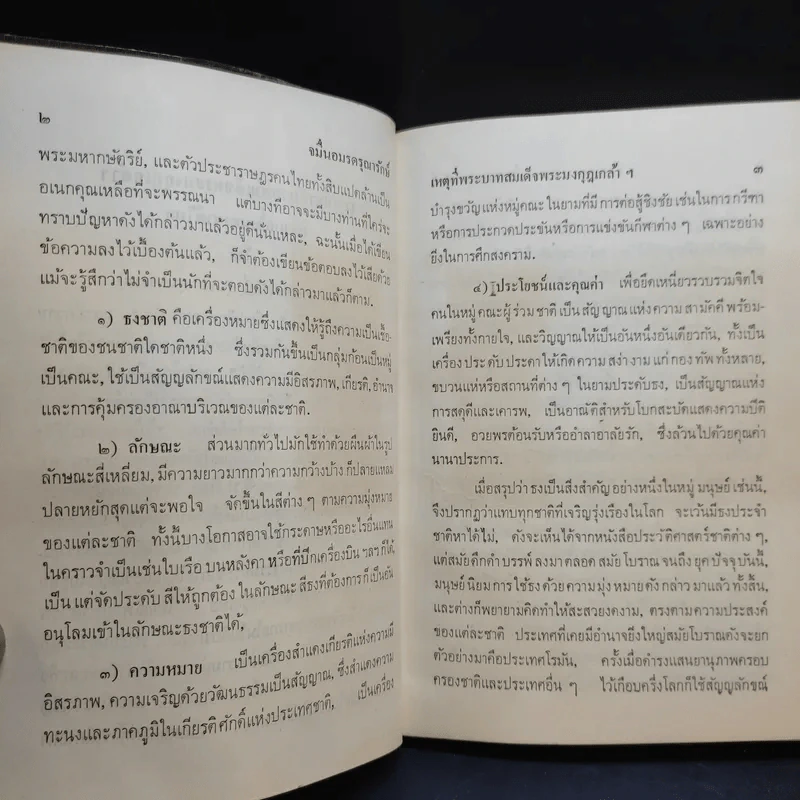 ๒
จมื่นอมรดรุณารักษ์
พระมหากษัตริย์, และตัวประชาราษฎรคนไทยทั้งสิบแปดล้านเป็น
อเนกคุณเหลือที่จะพรรณนา แต่บางทีอาจจะมีบางท่านที่ใคร่จะ
ทราบปัญหาดังได้กล่าวมาแล้วอยู่ดีนั่นแหละ, ฉะนั้นเมื่อได้เขียน
ข้อความลงไว้เบื้องต้นแล้ว, ก็จำต้องเขียนข้อตอบลงไว้เสียด้วย
แม้จะรู้สึกว่าไม่จำเป็นนักที่จะตอบดังได้กล่าวมาแล้วก็ตาม.
๑) ธงชาติ คือเครื่องหมายซึ่งแสดงให้รู้ถึงความเป็นเชื้อ-
ชาติของชนชาติใดชาติหนึ่ง ซึ่งรวมกันขึ้นเป็นกลุ่มก้อนเป็นหมู่
เป็นคณะ, ใช้เป็นสัญญลักขณ์แสดงความมีอิสรภาพ, เกียรติ, อำนาจ
และการคุ้มครองอาณาบริเวณของแต่ละชาติ.
๒) ลักษณะ ส่วนมากทั่วไปมักใช้ทำด้วยผืนผ้าในรูป
ลักษณะสี่เหลี่ยม, มีความยาวมากกว่าความกว้างบ้าง ก็ปลายแหลม
ปลายหยักสุดแต่จะพอใจ จัดขึ้นในสีต่าง ๆ ตามความมุ่งหมาย
ของแต่ละชาติ ทั้งนี้บางโอกาสอาจใช้กระดาษหรืออะไรอื่นแทน
ในคราวจำเป็นเช่นใบเรือ บนหลังคา หรือที่ปีกเครื่องบิน ฯลฯ ก็ได้,
เป็น แต่จัดประดับ สีให้ถูกต้อง ในลักษณะ สีธงที่ต้องการ ก็เป็นอัน
อนุโลมเข้าในลักษณะธงชาติได้,
๓) ความหมาย เป็นเครื่องสำแดงเกียรติแห่งความมี
อิสรภาพ, ความเจริญด้วยวัฒนธรรมเป็นสัญญาณ, ซึ่งสำแดงความ
ทะนงและภาคภูมิในเกียรติศักดิ์แห่งประเทศชาติ, เป็นเครื่อง
เหตุที่พระบาทสมเด็จพระมงกุฎเกล้า ฯ
๓
บำรุงขวัญ แห่งหมู่คณะ ในยามที่มี การต่อสู้ชิงชัย เช่นในการ กรีฑา
หรือการประกวดประขันหรือการแข่งขันกีฬาต่าง ๆ เฉพาะอย่าง
ยิ่งในการศึกสงคราม.
๔) ประโยชน์และคุณค่า เพื่อยึดเหนี่ยวรวบรวมจิตใจ
คนในหมู่ คณะผู้ ร่วม ชาติ เป็น สัญญาณ แห่ง ความ สามัคคี พร้อม-
เพรียงทั้งกายใจ, และวิญญาณให้เป็นอันหนึ่งอันเดียวกัน, ทั้งเป็น
เครื่อง ประ ดับ ประดา ให้เกิด ความ สง่า งาม แก่ กอง ทัพ ทั้งหลาย,
ขบวนแห่หรือสถานที่ต่าง ๆ ในยามประดับธง, เป็นสัญญาณแห่ง
การสดุดีและเคารพ, เป็นอาณัติสำหรับโบกสะบัดแสดงความปีติ
ยินดี, อวยพรต้อนรับหรืออำลาอาลัยรัก, ซึ่งล้วนไปด้วยคุณค่า
นานาประการ.
เมื่อสรุปว่า ธงเป็นสิ่งสำคัญ อย่างหนึ่งในหมู่ มนุษย์ เช่นนี้,
จึงปรากฏว่าแทบทุกชาติที่เจริญรุ่งเรืองในโลก จะเว้นมีธงประจำ
ชาติหาได้ไม่, ดังจะเห็นได้จากหนังสือประวัติศาสตร์ชาติต่าง ๆ,
แต่สมัยดึกดำ บรรพ์ ลงมา ตลอด สมัย โบราณ จนถึง ยุค ปัจจุบันนี้,
มนุษย์ นิยม การ ใช้ธง ด้วย ความ มุ่ง หมาย ดัง กล่าว มาแล้ว ทั้งสิ้น,
และต่างก็พยายามคิดทำให้สะสวยงดงาม, ตรงตามความประสงค์
ของแต่ละชาติ ประเทศที่เคยมีอำนาจยิ่งใหญ่สมัยโบราณดังจะยก
ตัวอย่างมาคือประเทศโรมัน, ครั้งเมื่อดำรงแสนยานุภาพครอบ
ครองชาติและประเทศอื่น ๆ ไว้เกือบครึ่งโลกก็ใช้สัญญลักขณ์